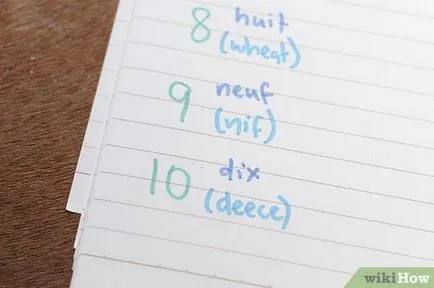 8 huit
(wheat)
9 neuf
(nif)
10 dix
(deece)
wikiHow